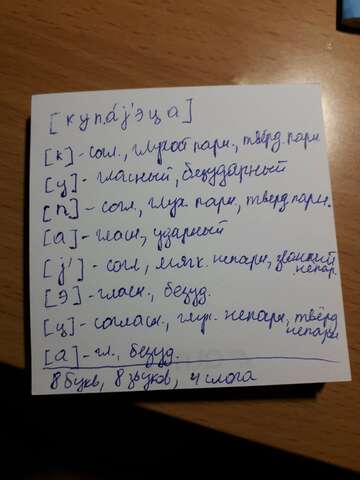 [купа́j'эца]
[к]- согл., глухой парн., твёрд. парн
[у]- гласный, безударный
[п]- согл., глух. парн, тверд парн.
[а]- гласн, ударный
[j']- согл, мягк. непарн, звонкий непар.
[э]- гласн., безуд.
[ц]- согласн., глух. непарн, твёрд непарн
[а]- гл., безуд.
8 букв, 8 звуков, 4 слога